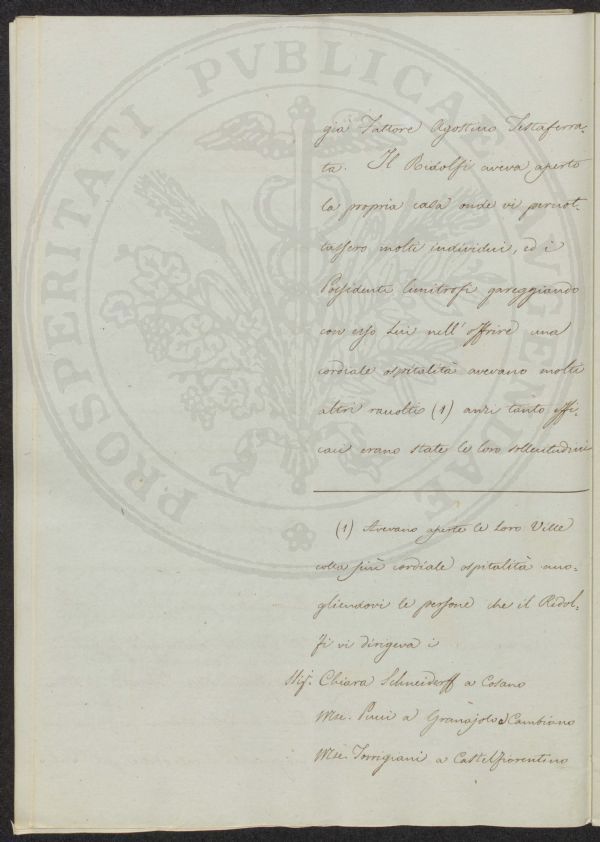 già Fattore Agostino Testaferra-
ta. Il Ridolfi aveva aperto
la propria casa onde vi pernot-
tassero molti individui, ed i
Possidenti limitrofi gareggiando
con esso Lui nell' offrire una
cordiale ospitalità avevano molti
altri raccolti (1) anzi tanto effi-
caci erano state le loro sollecitudini
(1) Avevano aperte le loro Ville
colla più cordiale ospitalità acco-
gliendovi le persone che il Ridol-
fi vi dirigeva i
Sig. Chiara Schneiderff a Cosano
Mse. Pucci a Granajolo e Cambiano
Mse. Torrigiani a Castelfiorentino
PROSPERITATI PVBLICAE AVGENDAE